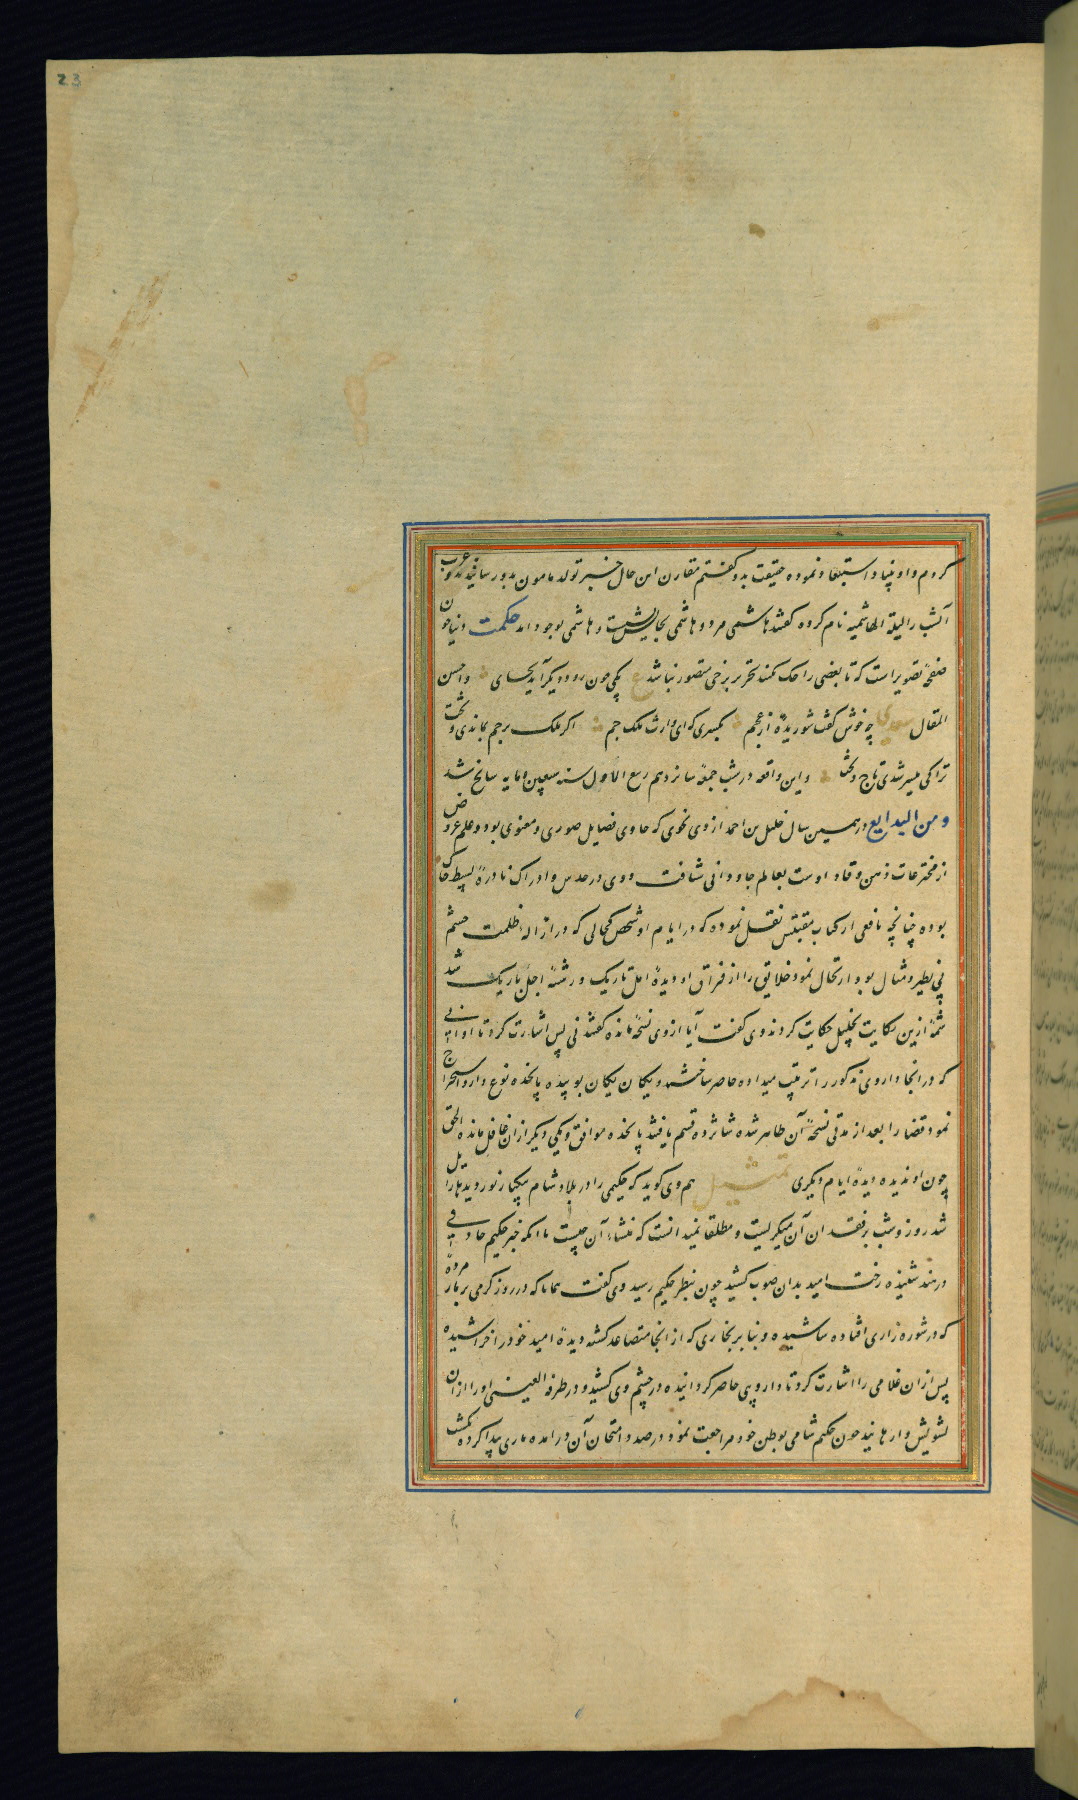 23
کردم و او بنیاد استبعاد نموده حقیقت بدو گفتم مقارن این حال خبر تولد مامون بدو رسانیدند عرب
آنشب را لیلة الهاشمیه نام کرده گفتند هاشمی مرد و هاشمی بجایش نشست و هاشمی بوجود آمد حکمت دنیا چون
صفحهٔ تصویر است که تا بعضی را حک نکنند تحریر برخی متصور نباشد ع یکی چون رود دیگر آید بجای واحسن
المقال سعدی چه خوش گفت شوریدهٔ از عجم بکسری که ای وارث ملک جم اگر ملک بر جم بماندی و بخت
ترا کی میسر شدی تاج و تخت و این واقعه در شب جمعه شانزدهم ربیع الاول سنه سبعین و مایه سانح شد
و من البدایع در همین سال خلیل بن احمد ازدی نحوی که حاوی فضایل صوری و معنوی بود و علم عروض
از مخترعات ذهن وقاد اوست بعالم جاودانی شتافت و وی در حدس و ادراک نادرهٔ بسیط خاک
بوده چنانچه نافعی از کتاب مقتبس نقل نموده که در ایام او شخص کحالی که در ازالهٔ ظلمت چشم
بی نظیر و مثال بود ارتحال نمود خلایق را از فراق او دیدهٔ امل تاریک و رشتهٔ اجل باریک شد
شمهٔ ازین شکایت بخلیل حکایت کردند وی گفت آیا ازوی نسخهٔ مانده گفتند نی پس اشارت کرد تا اوانیی
که در انجا داروی مذکور را ترتیب میداده حاضر ساختند و یکان یکان بوییده پانزده نوع دارو استخراج
نمود قضا را بعد از مدتی نسخهٔ آن ظاهر شده شانزده قسم یافتند پانزده موافق و یکی دیگر ازان غافل مانده الحق
چون او ندیده دیدهٔ ایام دیگری تمثیل هم وی گوید که حکیمی را در بلاد شام یکبار نور دیدها زایل
شد روز و شب بر فقدان آن میگریست و مطلقا نمیدانست که منشاء آن چیست تا انکه خبر حکیم حاذقی
در هند شنیده رخت امید بدان صوب کشید چون بنظر حکیم رسید وی گفت همانا که در روز گرمی بر مار مردهٔ
که در شوره زاری افتاده شاشیده و بنا بر بخاری که از انجا متصاعد گشته دیدهٔ امید خود را خراشیده
پس ازان غلامی را اشارت کرد تا دارویی حاضر گردانیده در چشم وی کشید و در طرفة العینی او را ازان
تشویش وارهانید چون حکیم شامی بوطن خود مراجعت نمود و در صدد امتحان آن درامده ماری پیدا کرده بکشت